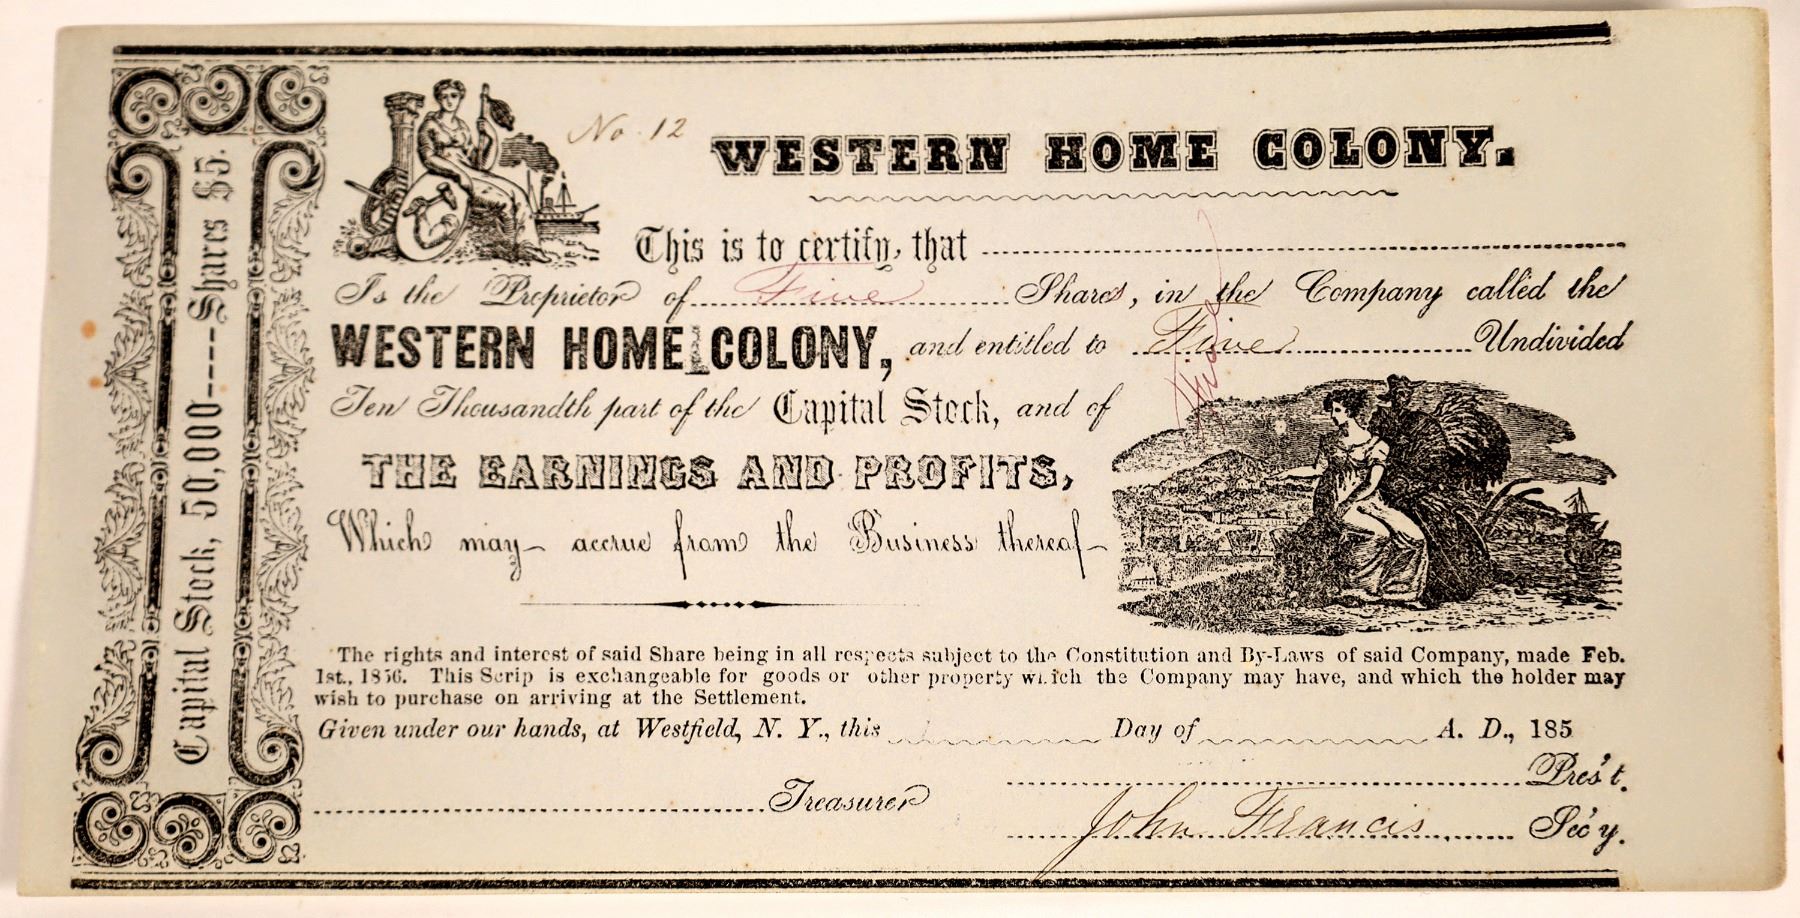 Capital Stock, 50,000----Shares $5.
No. 12
WESTERN HOME COLONY.
This is to certify, that
Is the Proprietor of Five Shares, in the Company called the
WESTERN HOME COLONY, and entitled to Five Undivided
Ten Thousandth part of the Capital Stock, and of
THE EARNINGS AND PROFITS,
Which may accrue from the Business thereof
The rights and interest of said Share being in all respects subject to the Constitution and By-Laws of said Company, made Feb.
1st., 1856. This Scrip is exchangeable for goods or other property which the Company may have, and which the holder may
wish to purchase on arriving at the Settlement.
Given under our hands, at Westfield, N. Y., this Day of A. D., 185
Pres't.
Treasurer
John Francis Sec'y.